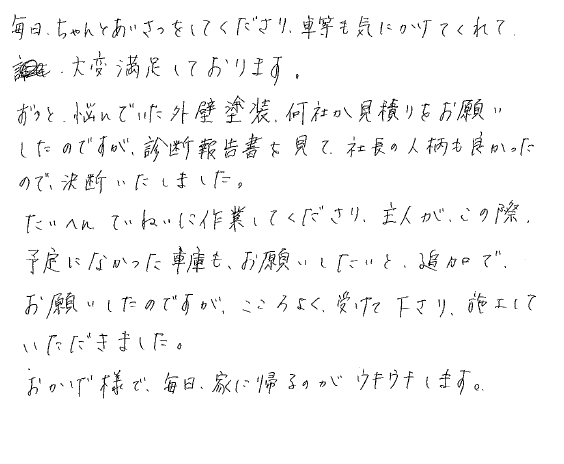 毎日、ちゃんとあいさつをしてくださり、車等も気にかけてくれて、
大変満足しております。
ずっと、悩んでいた外壁塗装、何社か見積りをお願い
したのですが、診断報告書を見て、社長の人柄も良かった
ので、決断いたしました。
たいへん ていねいに作業してくださり、主人が、この際、
予定になかった車庫も、お願いしたいと、追加で、
お願いしたのですが、こころよく、受けて下さり、施工して
いただきました。
おかげ様で、毎日、家に帰るのがウキウキします。